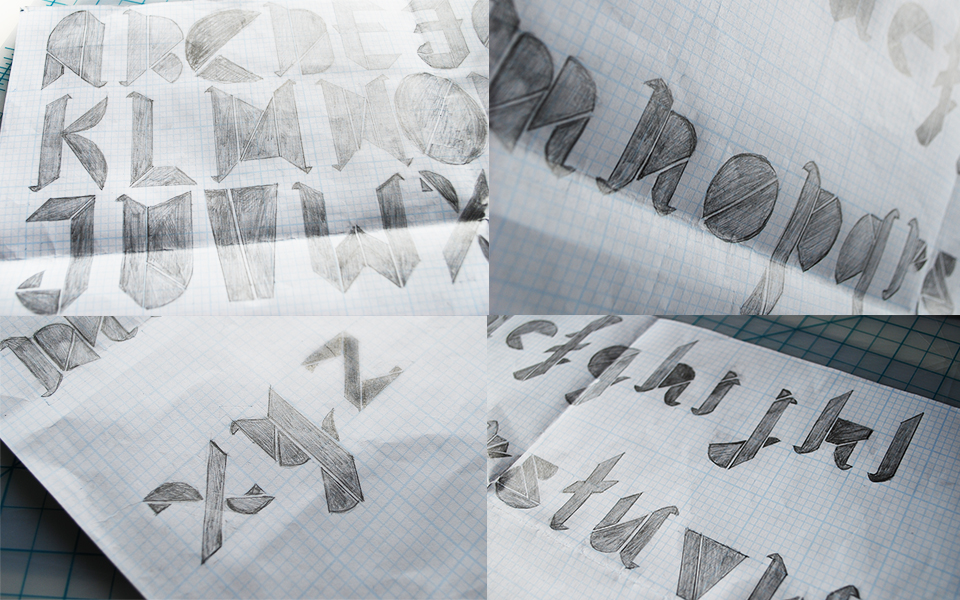 A B C D E F
K L M N O
T U V W X
m n o p q r s
x y z
e f g h i j k l
s t u v